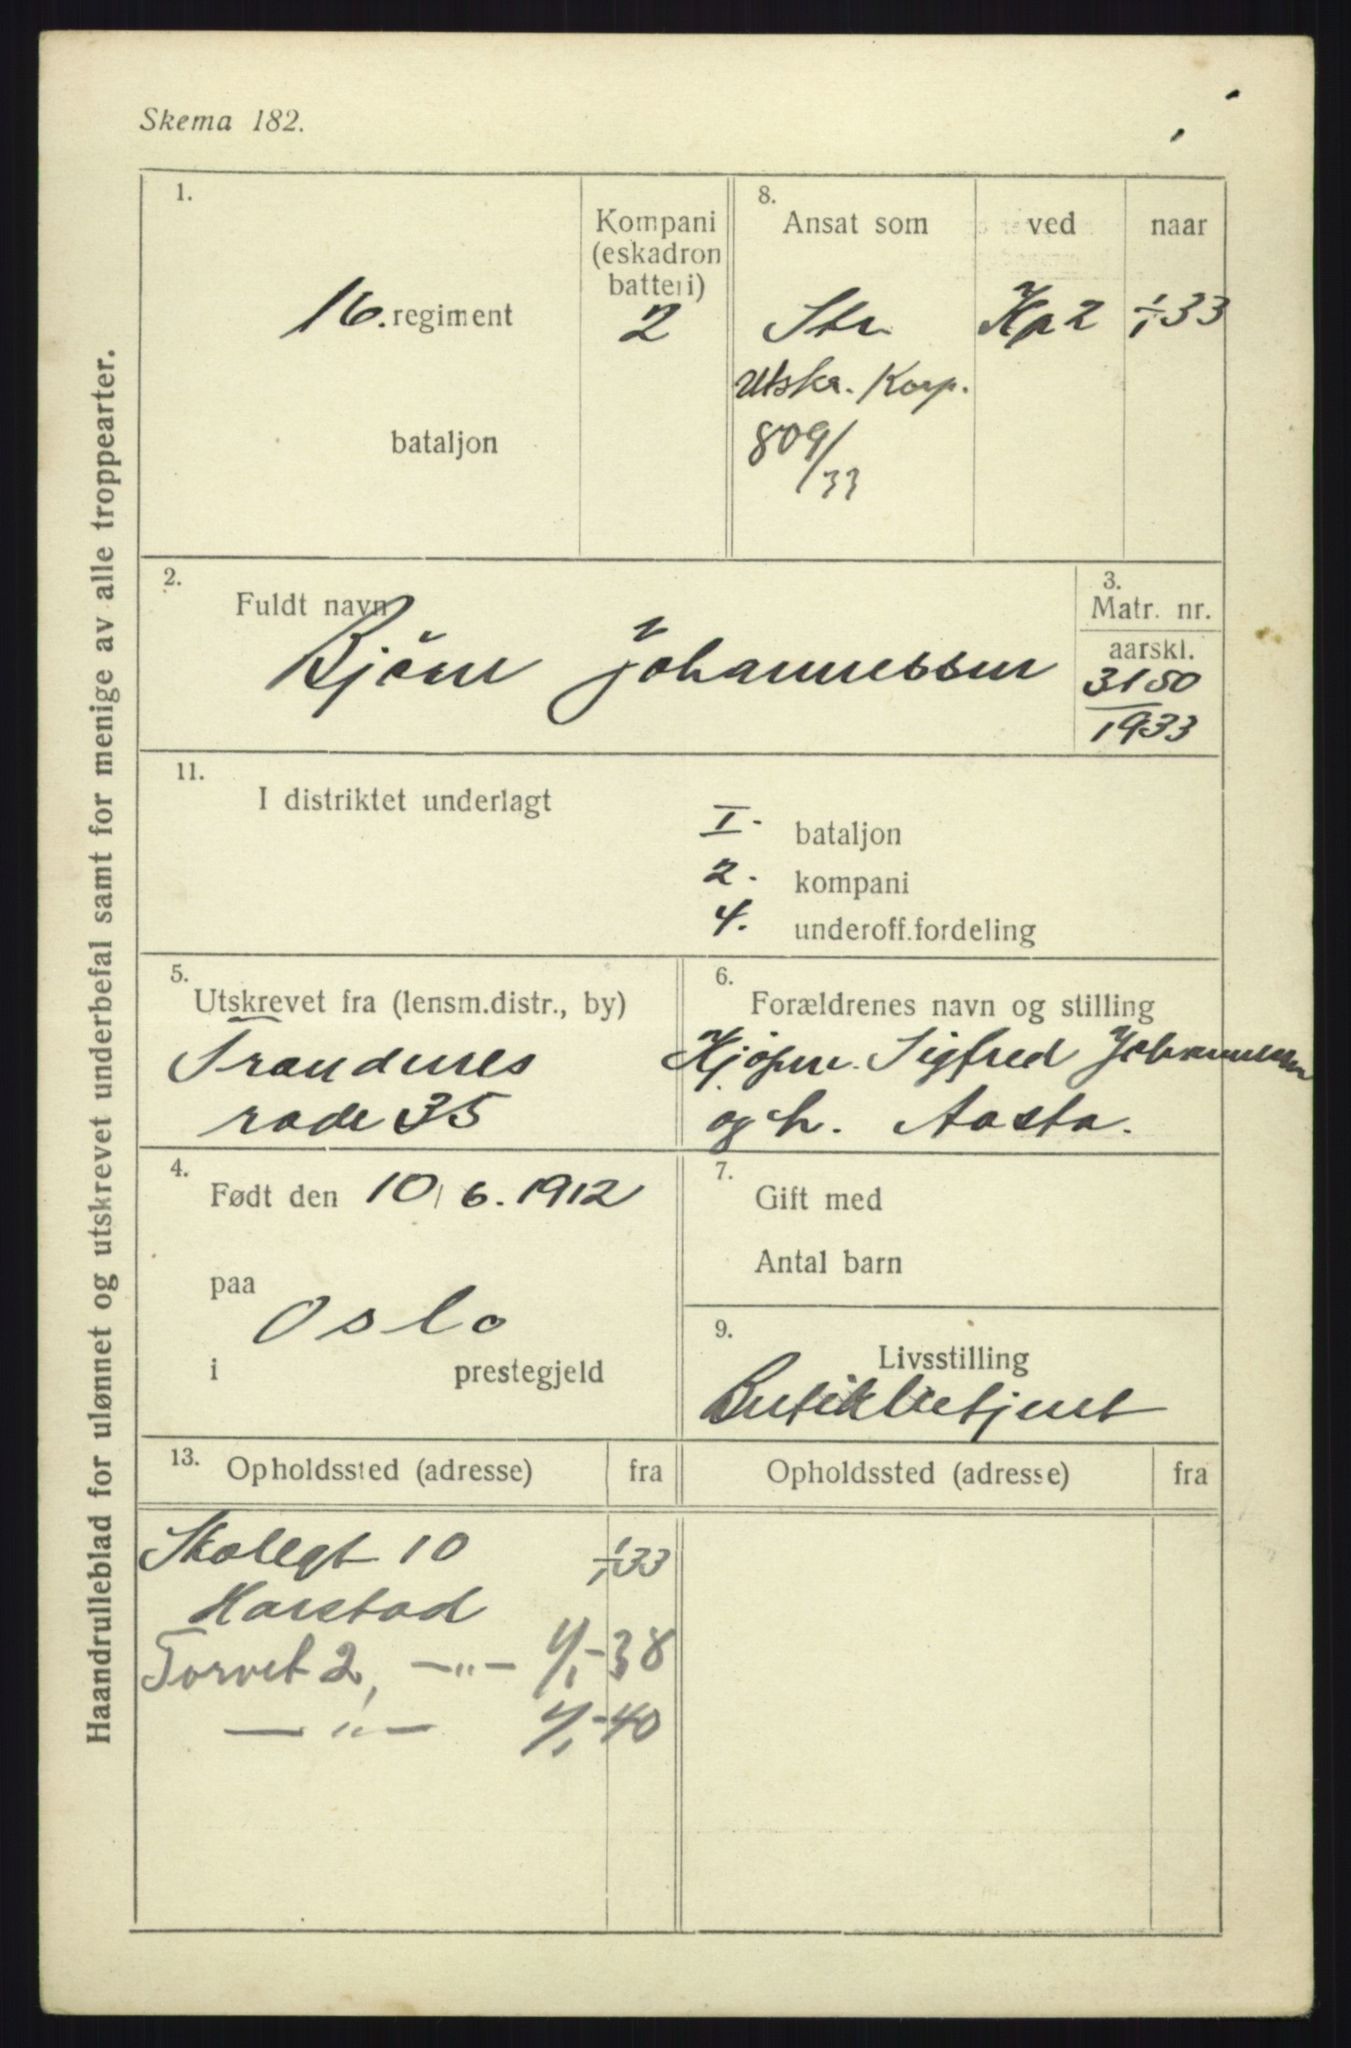 Skema 182.
Haandrulleblad for ulønnet og utskrevet underbefal samt for menige av alle troppearter.
1.
16. regiment
bataljon
Kompani
(eskadron
batteri)
2
8.
Ansat som
ved
naar
Str
Kp 2
1/1 33
Utskr. Korp.
809/33
2.
Fuldt navn
Bjørn Johannessen
3.
Matr. nr.
aarskl.
3150
1933
11.
I distriktet underlagt
I. bataljon
2. kompani
4. underoff.fordeling
5.
Utskrevet fra (lensm.distr., by)
Trondenes
rode 35
6.
Forældrenes navn og stilling
Kjøpm. Sigfred Johannessen
og h. Aasta.
4.
Født den 10/6.1912
paa
Oslo
i prestegjeld
7.
Gift med
Antal barn
9.
Livsstilling
Butikkbetjent
13.
Opholdssted (adresse) fra
Opholdssted (adresse) fra
Skolegt 10 1/1 33
Harstad
Torvet 2, —"— 1/1-38
—"— 1/1-40